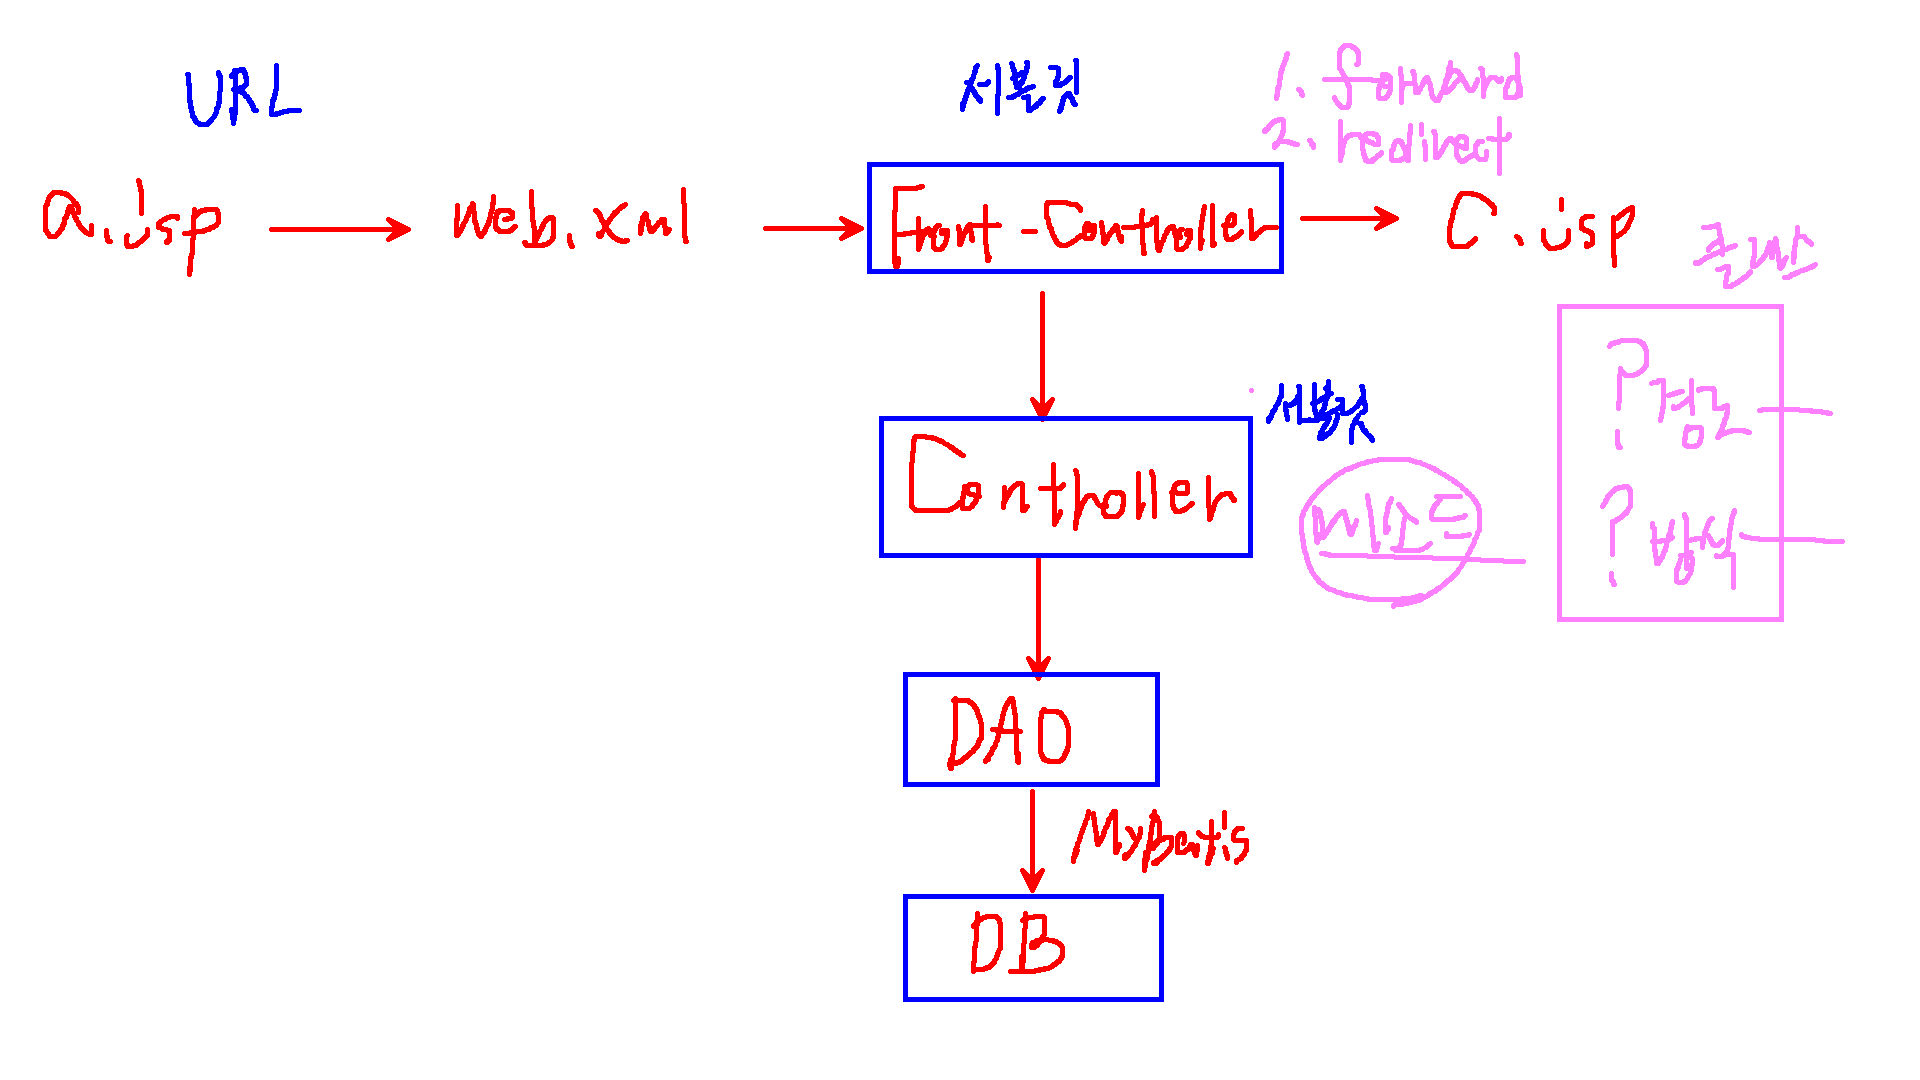 URL
서블릿
1. forward
2. redirect
a.jsp
web.xml
Front-Controller
C.jsp
클래스
? 경로
서블릿
Controller
메소드
? 방식
DAO
MyBatis
DB